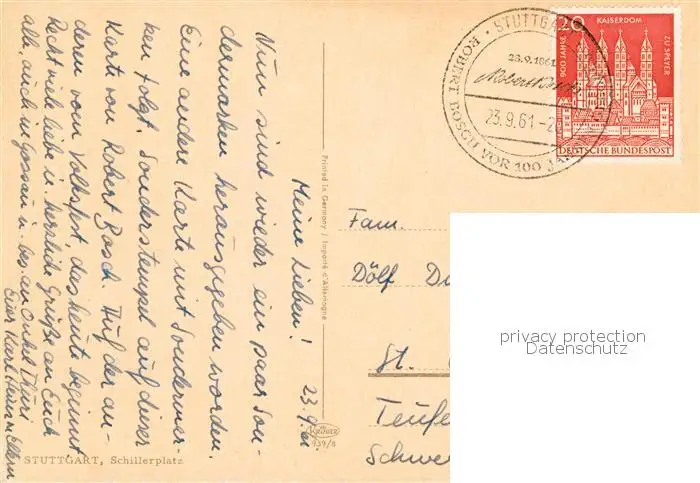 Meine Lieben! 23.9.61
Nun sind wieder ein paar Son-
dermarken herausgegeben worden.
Eine andere Karte mit Sondermar-
ken folgt. Sonderstempel auf dieser
Karte von Robert Bosch. Auf der an-
deren vom Volksfest, das heute beginnt.
Recht viele liebe u. herzliche Grüße an Euch
all, auch in Gossau u. bes. an Onkel
Euer Karl Heinz u. Eltern
STUTTGART, Schillerplatz
Printed in Germany / Importé d'Allemagne
KRÜGER
939/8
STUTTGART
23.9.1861
Robert Bosch
23.9.61-2
ROBERT BOSCH VOR 100 JA
20
KAISERDOM
900 JAHRE
ZU SPEYER
DEUTSCHE BUNDESPOST
Fam.
Dölf
St.
Teufe
Schwe
privacy protection
Datenschutz